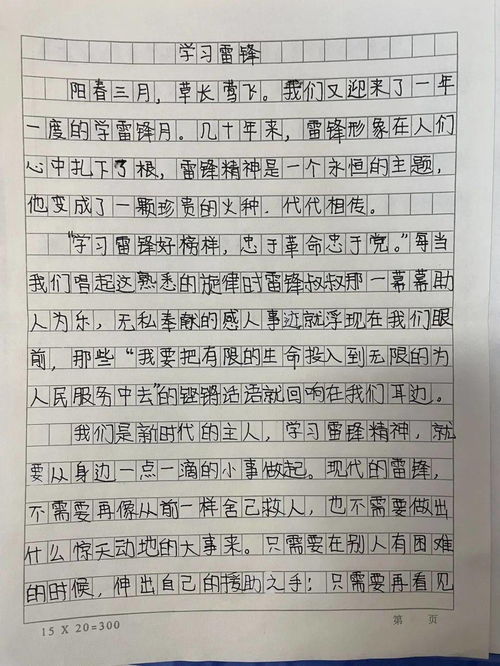 学习雷锋
阳春三月，草长莺飞。我们又迎来了一年
一度的学雷锋月。几十年来，雷锋形象在人们
心中扎下了根，雷锋精神是一个永恒的主题，
他变成了一颗珍贵的火种．代代相传。
"学习雷锋好榜样，忠于革命忠于党。"每当
我们唱起这熟悉的旋律时雷锋叔叔那一幕幕助
人为乐，无私奉献的感人事迹就浮现在我们眼
前，那些"我要把有限的生命投入到无限的为
人民服务中去"的铿锵话语就回响在我们耳边。
我们是新时代的主人，学习雷锋精神，就
要从身边一点一滴的小事做起。现代的雷锋，
不需要再像从前一样舍己救人，也不需要做出
什么惊天动地的大事来。只需要在别人有困难
的时候，伸出自己的援助之手；只需要再看见
15 X 20=300 第 页